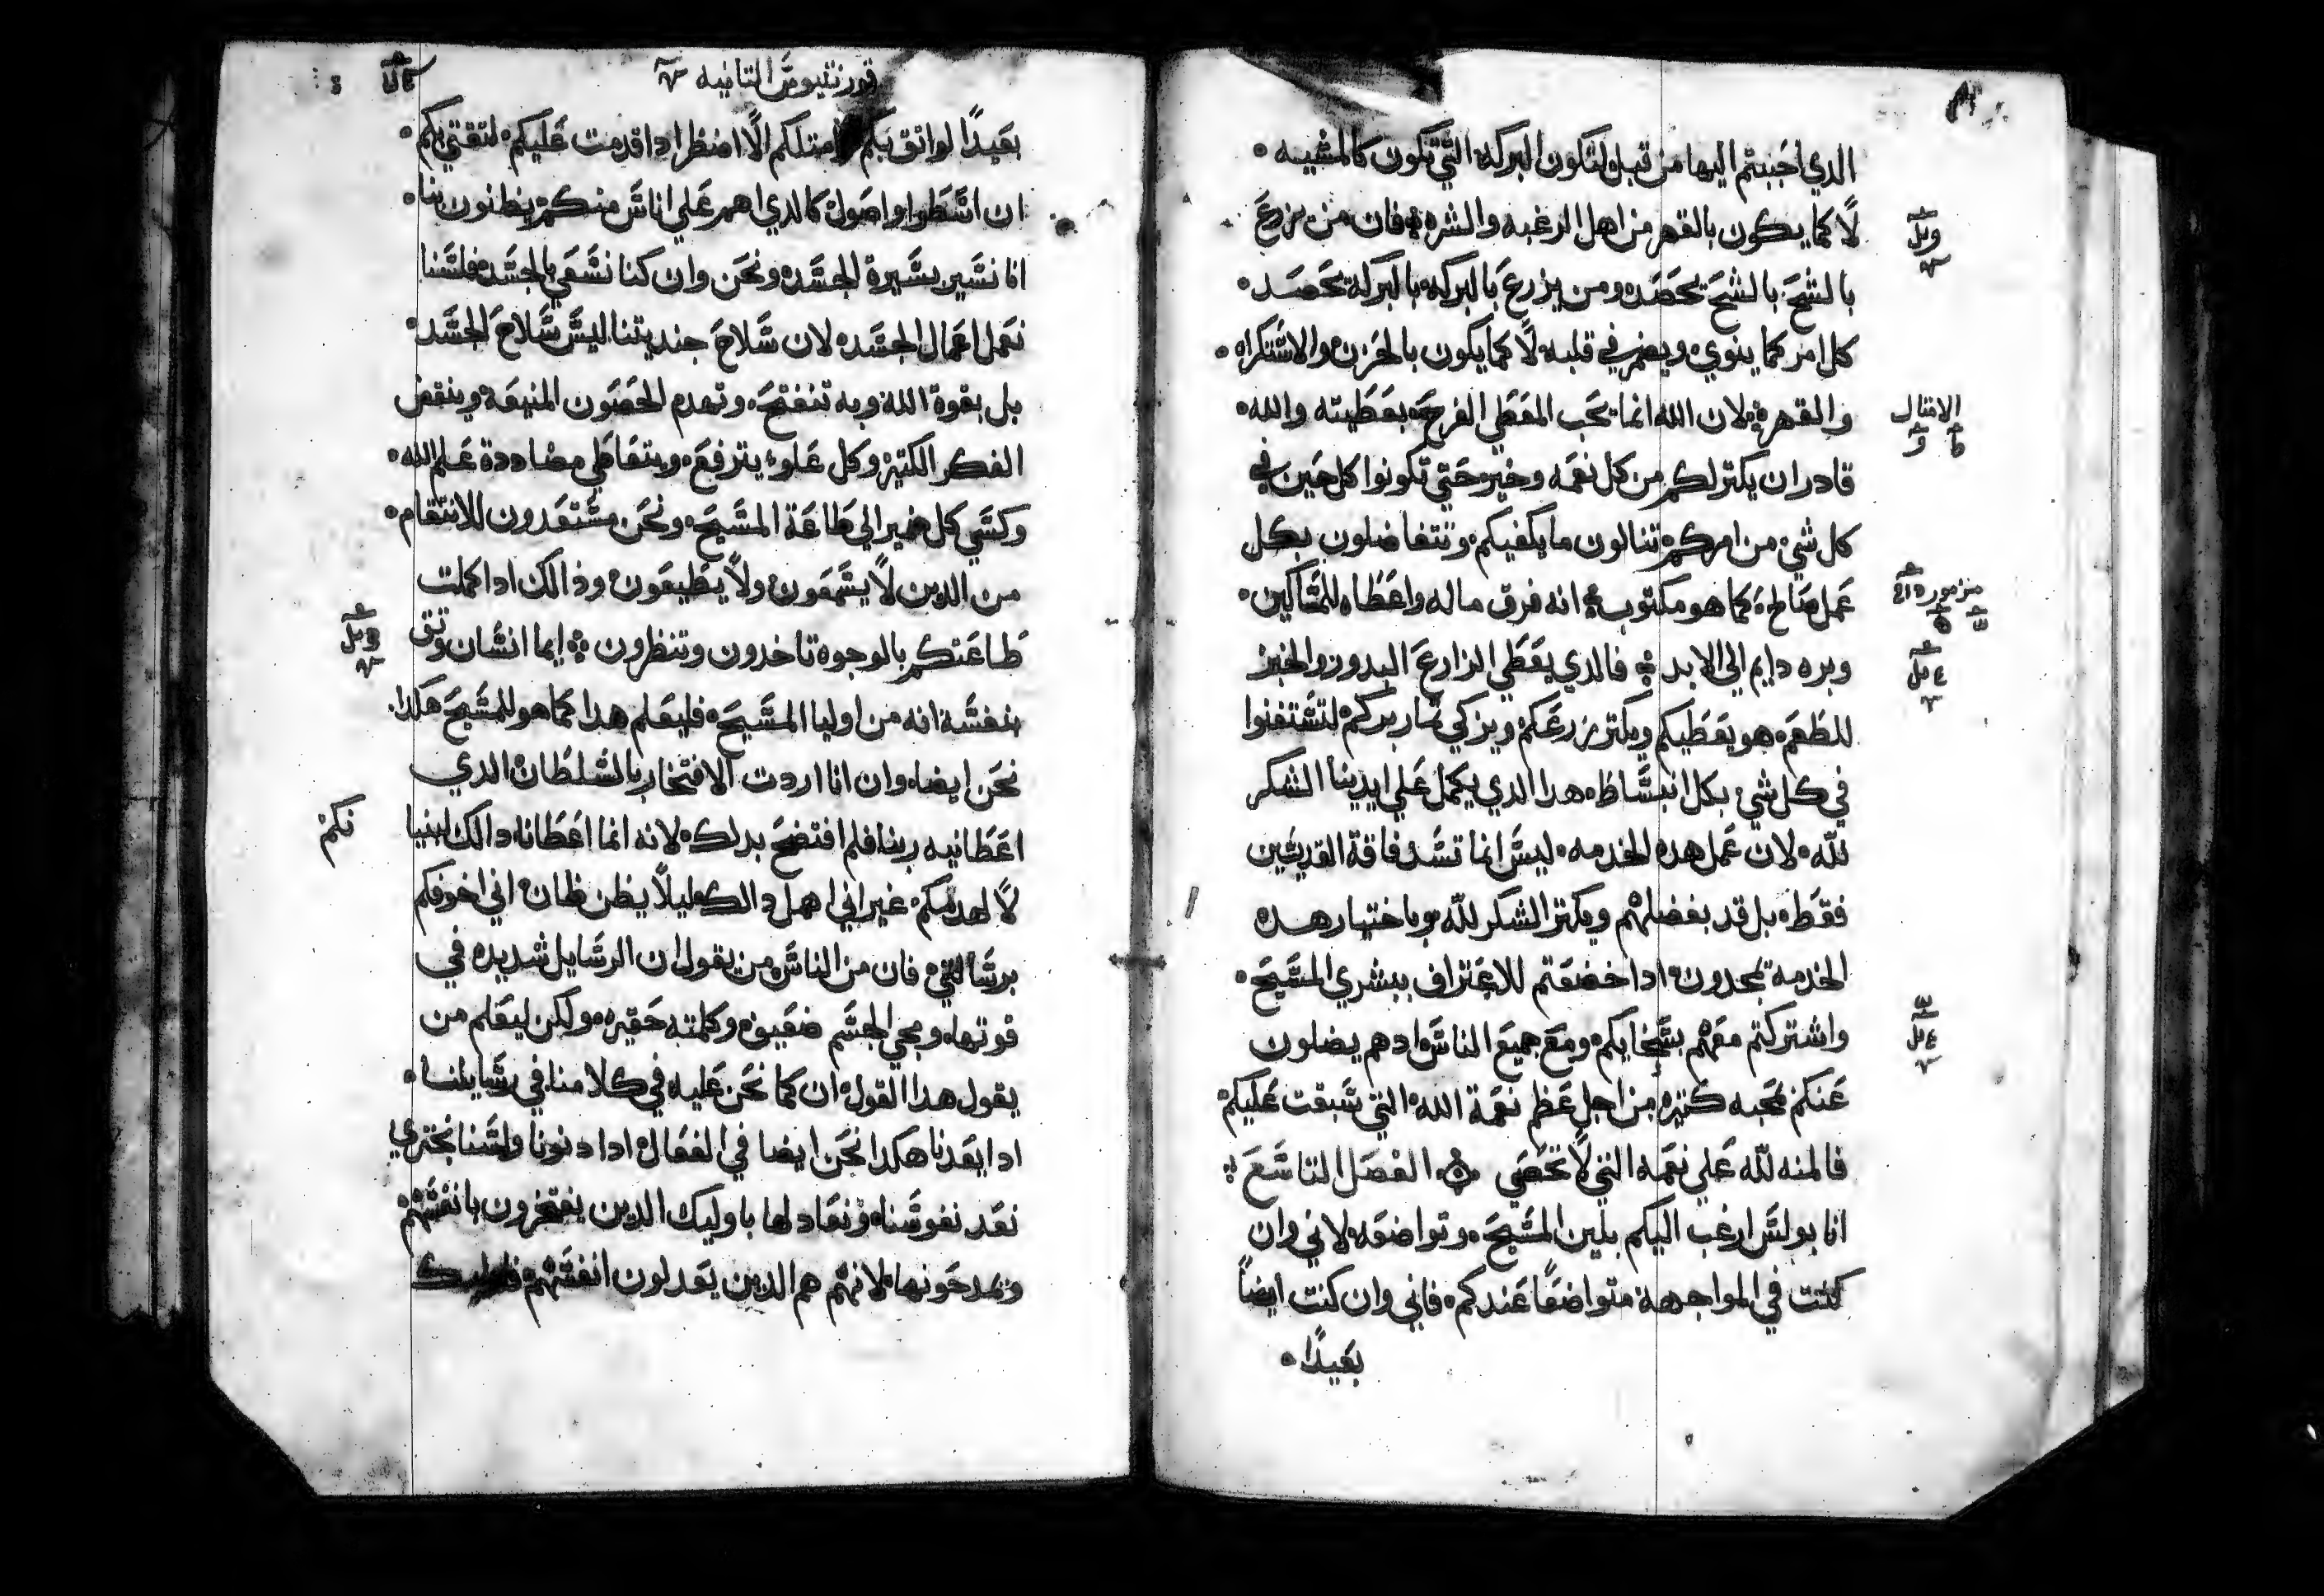 الدي اجبتم اليها من قبل لتكون البركه التي تكون كالمشيه
لا كما يكون بالقهر من اهل الرغبه والشره فان من يزرع
بالشح بالشح يحصد ومن يزرع بالبركه بالبركة يحصد
كل امر كما ينوي ويضمر في قلبه لا كما يكون بالحزن والاستكراه
والقهر لان الله انما يحب المعطي الفرح بعطيته والله
قادر ان يكتر لكم من كل نعمه وخير حتي تكونوا كل حين في
كل شي من امركم تنالون ما يكفيكم وتتفاضلون بكل
عمل صالح كما هو مكتوب انه فرق ماله واعطاه للمساكين
وبره دايم الي الابد فالدي يعطي الزارع البدور والخبز
للطعم هو يعطيكم ويكتر زرعكم ويزكي تمار بركم لتستغنوا
في كل شي بكل انبساط هدا الدي يكمل علي ايدينا الشكر
لله لان عمل هده الخدمه ليس انما تسد فاقة القديسين
فقط بل قد بفضلهم ويكتر الشكر لله وباختيار هده
الخدمة تمجدون ادا خضعتم للاعتراف ببشري المسيح
واشتركتم معهم بسخايكم ومع جميع الناس ادهم يصلون
عنكم بمحبه كتيره من اجل عظم نعمة الله التي سبقت عليكم
فالمنه لله علي نعمه التي لا تحصي الفصل التاسع
انا بولس ارغب اليكم بلين المسيح وتواضعه لاني وان
كنت في المواجهة متواضعا عندكم فاني وان كنت ايضا
بعيدا
الامتال
مزمور
قورنتيوس التانيه
بعيدا لواتق بكم امتلكم الا اضطر ادا قدمت عليكم لتقتي بكم
ان اسطوا واصول كالدي اهم علي اناس منكم يظنون بنا
انا نسير بسيرة الجسد ونحن وان كنا نسعي بالجسد فلسنا
نعمل اعمال الجسد لان سلاح جنديتنا ليس سلاح الجسد
بل بقوة الله وبه تنفتح وتهدم الحصون المنيعة وينقض
الفكر الكتير وكل علو يترفع ويتعاطي مضاددة علم الله
وكسي كل ضمير الي طاعة المسيح ونحن مستعدون للانتقام
من الدين لا يسمعون ولا يطيعون وذالك ادا كملت
طاعتكم بالوجوه تاخدون وتنظرون ايما انسان وتق
بنفسه انه من اوليا المسيح فليعلم هدا كما هو للمسيح هكدا
نحن ايضا وان انا اردت الافتخار بالسلطان الدي
اعطانيه ربنا فلم افتضح بدلك لانه انما اعطانا دالك لبنيا
نكم
لا لهدمكم غير اني اهمل دالك ليلا يظن ظان اني اخوفكم
برسالتي فان من الناس من يقول ان الرسايل شديده في
قوتها ومجي الجسم ضعيف وكلمته حقيره ولكن ليعلم من
يقول هدا القول ان كما نحن عليه في كلامنا في رسايلنا
ادا بعدنا هكدا نحن ايضا في الفعال ادا دنونا ولسنا نجتري
نعد نفوسنا ونعادلها باوليك الدين يفتخرون بانفسهم
ويمدحونها لانهم هم الدين يعدلون انفسهم